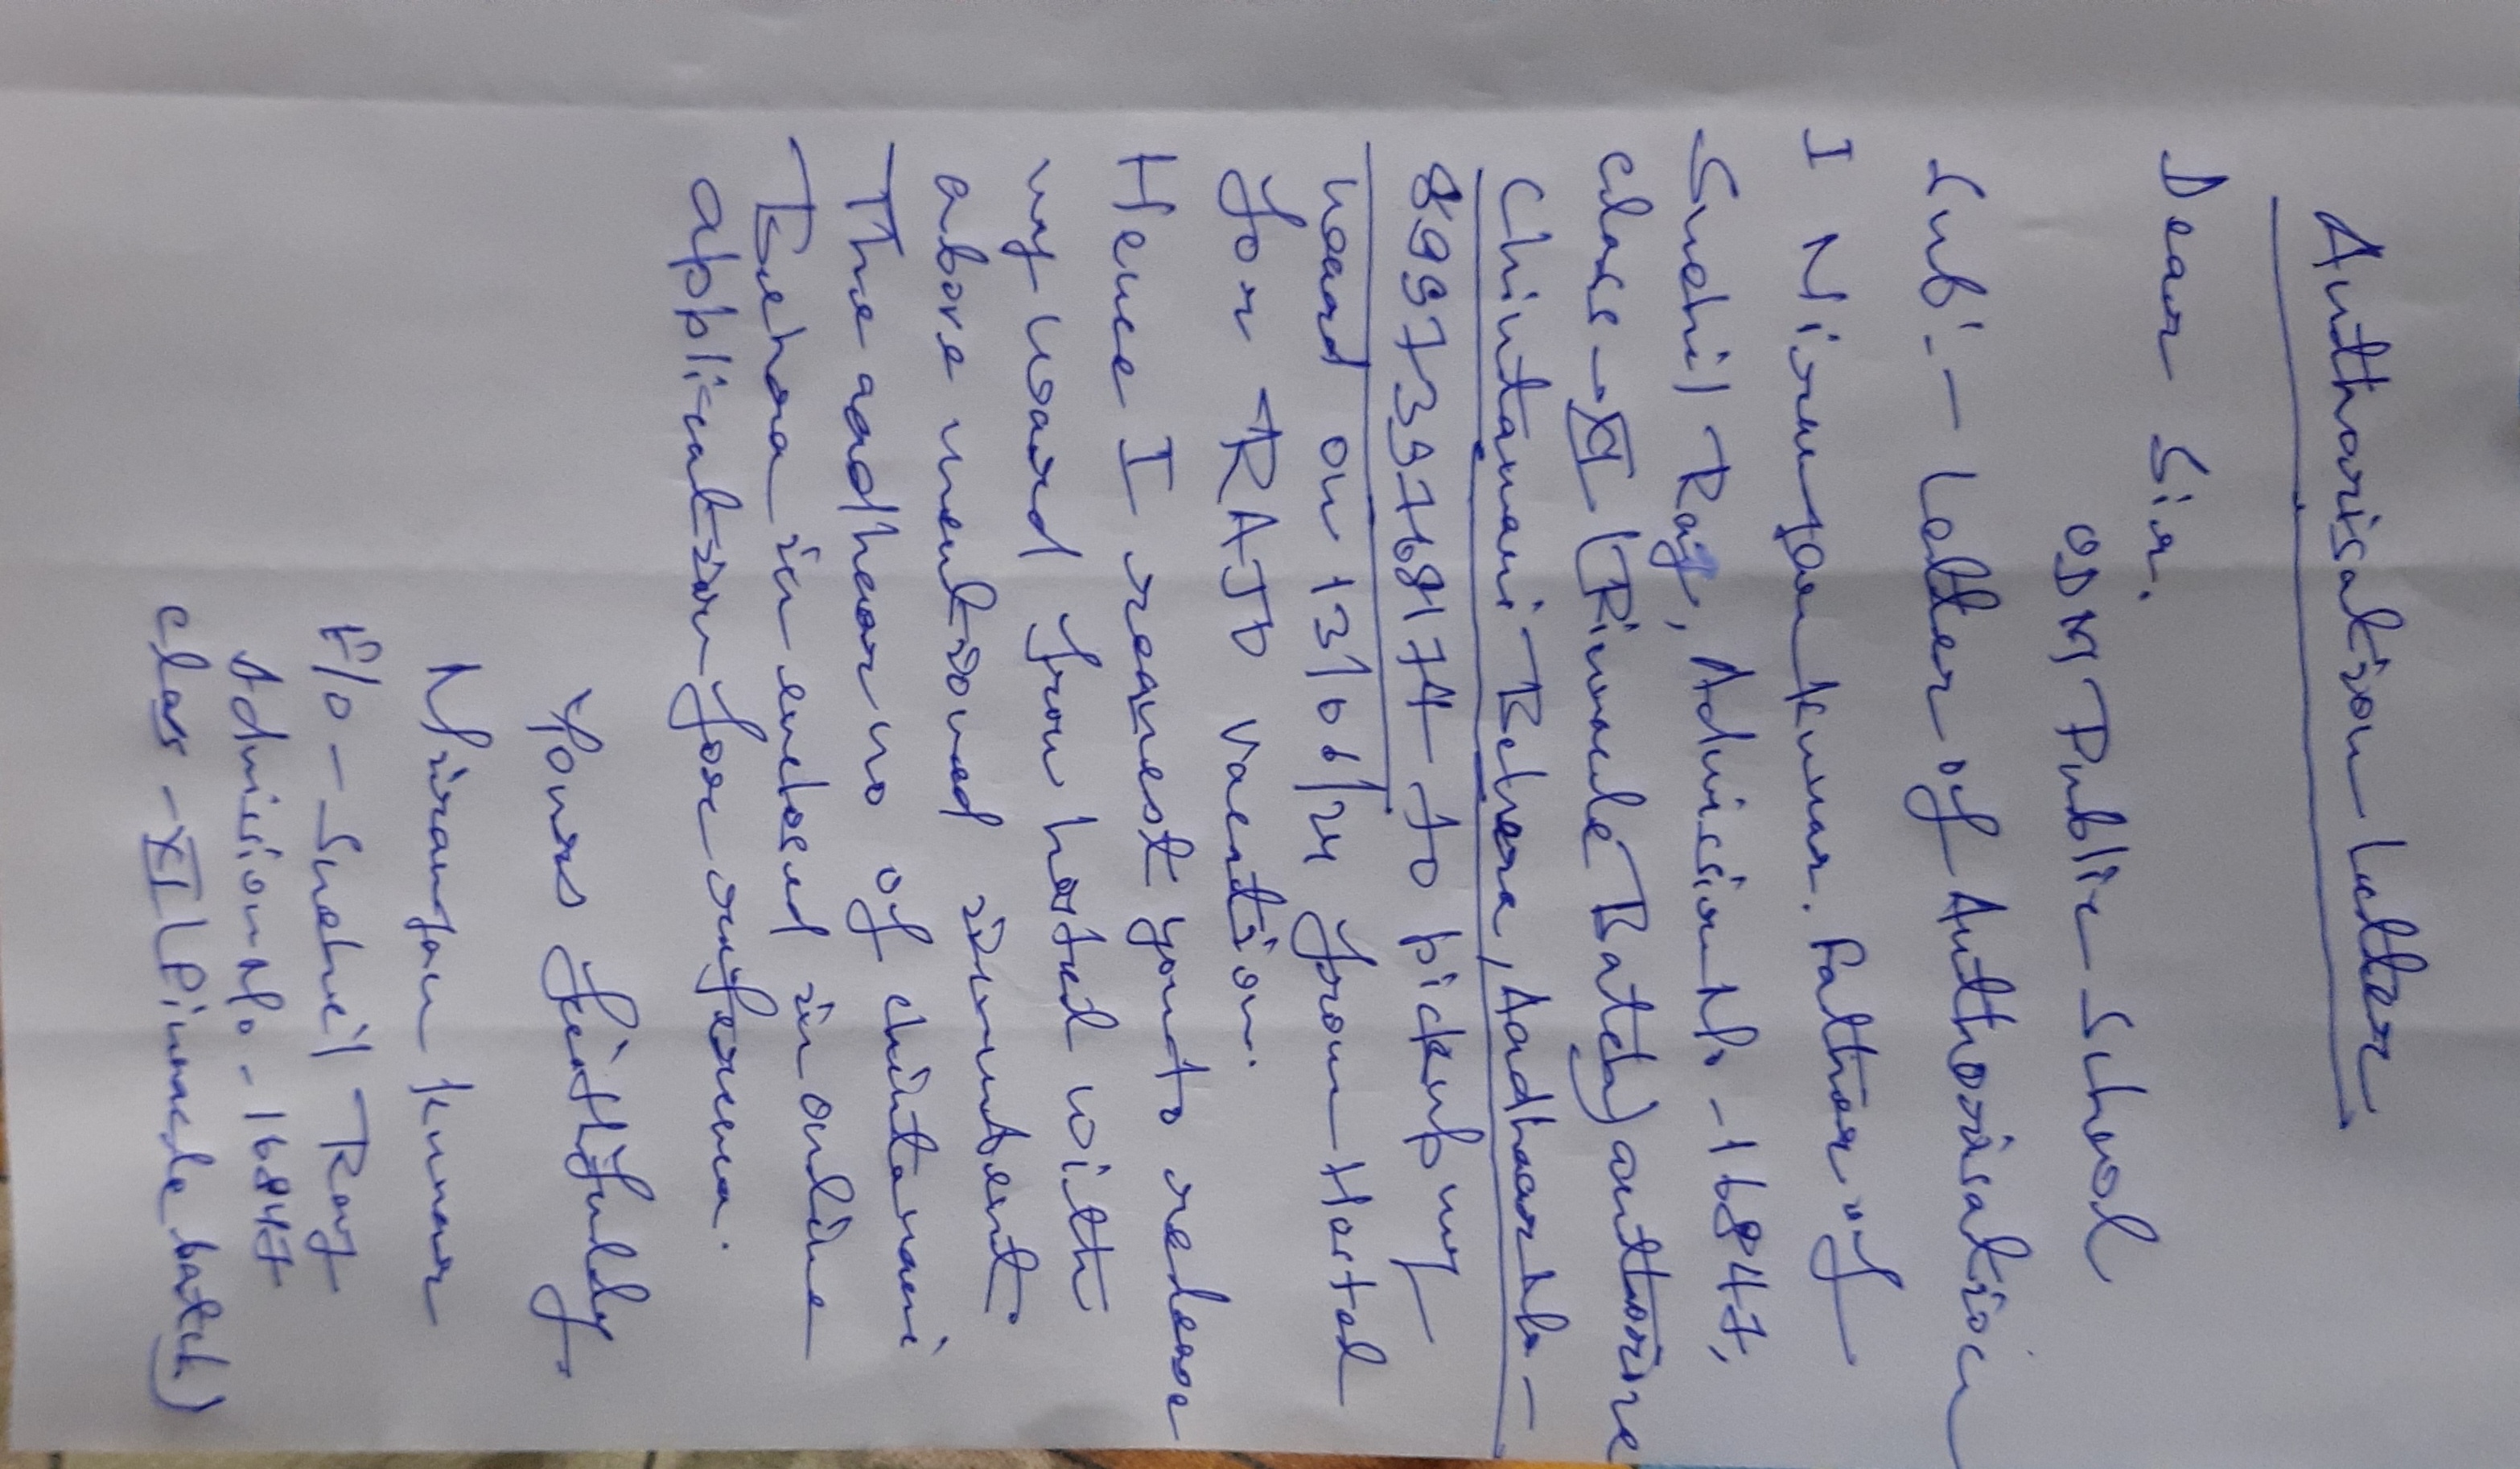 Authorisation Letter
Dear Sir.
ODM Public School
Sub:- Letter of Authorisation
I Niranjan Kumar. Father of
Snehil Raj, Admission No - 16847,
class - XI (Pinnacle Batch) authorise
Chintamani Behera, Aadhaar No -
to pickup my
ward on 13/06/24 from Hostel
for RAJO vacation.
Hence I request you to release
my ward from hostel with
above mentioned incumbent.
The aadhaar no of chintamani
Behera is enclosed in online
application for reference.
Yours faithfully
Niranjan Kumar
F/o - Snehil Raj
Admission No - 16847
class - XI (Pinnacle batch)